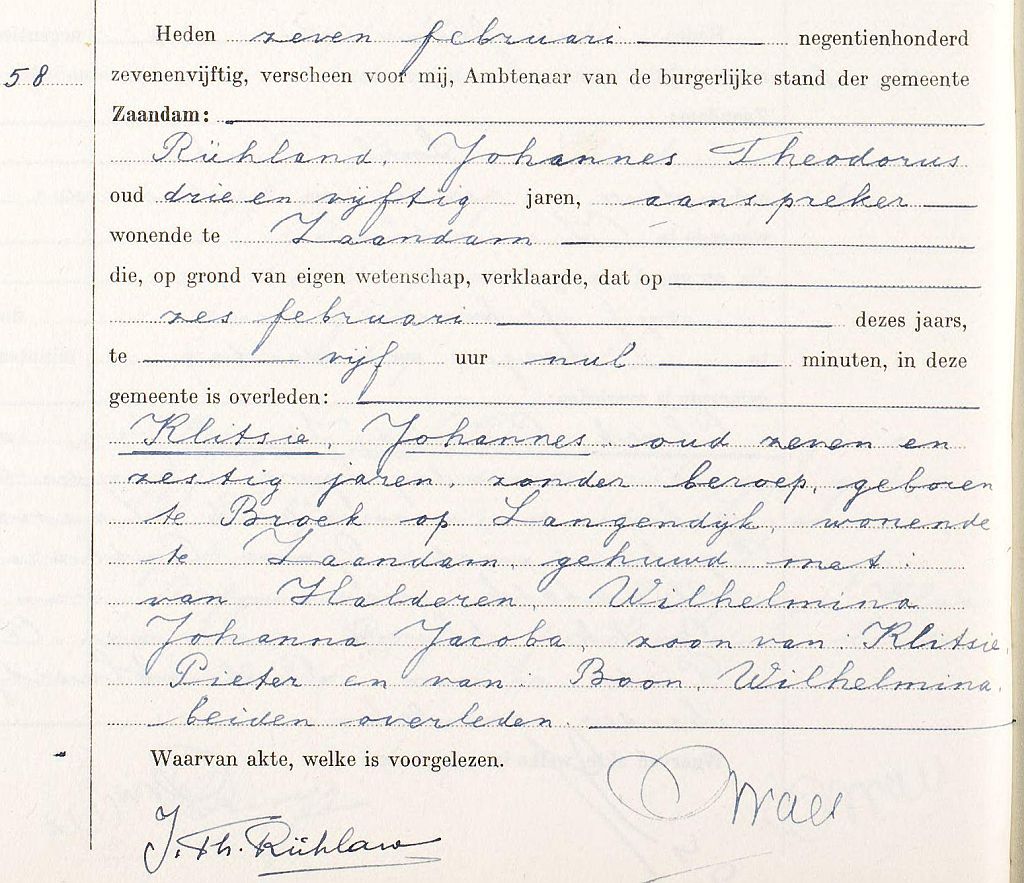 Heden zeven februari negentienhonderd
58 zevenenvijftig, verscheen voor mij, Ambtenaar van de burgerlijke stand der gemeente
Zaandam:
Rühland, Johannes Theodorus
oud drie en vijftig jaren, aanspreker
wonende te Zaandam
die, op grond van eigen wetenschap, verklaarde, dat op
zes februari dezes jaars,
te vijf uur nul minuten, in deze
gemeente is overleden:
Klitsie, Johannes, oud zeven en
zestig jaren, zonder beroep, geboren
te Broek op Langendijk, wonende
te Zaandam, gehuwd met:
van Halderen, Wilhelmina
Johanna Jacoba, zoon van: Klitsie,
Pieter en van: Boon, Wilhelmina,
beiden overleden.
Waarvan akte, welke is voorgelezen.
J. Th. Rühland